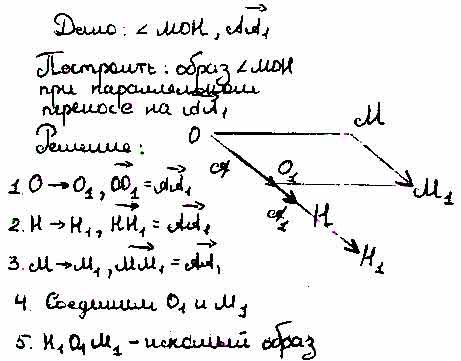 Дано: ∠МОН, AA₁
Построить: образ ∠МОН
при параллельном
переносе на AA₁
Решение:
1. O → O₁, OO₁ = AA₁
2. H → H₁, HH₁ = AA₁
3. M → M₁, MM₁ = AA₁
4. Соединим O₁ и M₁
5. H₁O₁M₁ – искомый образ
O
M
A
O₁
A₁
H
M₁
H₁